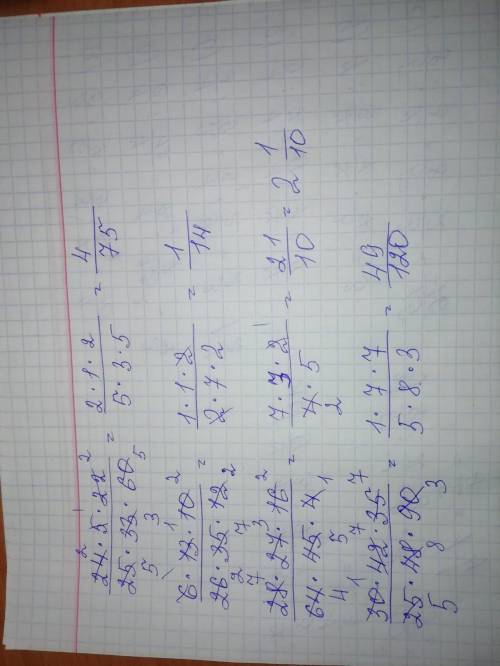 24 · 5 · 22 / 25 · 33 · 60 = 2 · 1 · 2 / 5 · 3 · 5 = 4 / 75
6 · 13 · 10 / 26 · 35 · 12 = 1 · 1 · 2 / 2 · 7 · 2 = 1 / 14
28 · 27 · 16 / 64 · 45 · 4 = 7 · 3 · 2 / 4 · 5 = 21 / 10 = 2 1 / 10
30 · 42 · 35 / 25 · 48 · 90 = 1 · 7 · 7 / 5 · 8 · 3 = 49 / 120